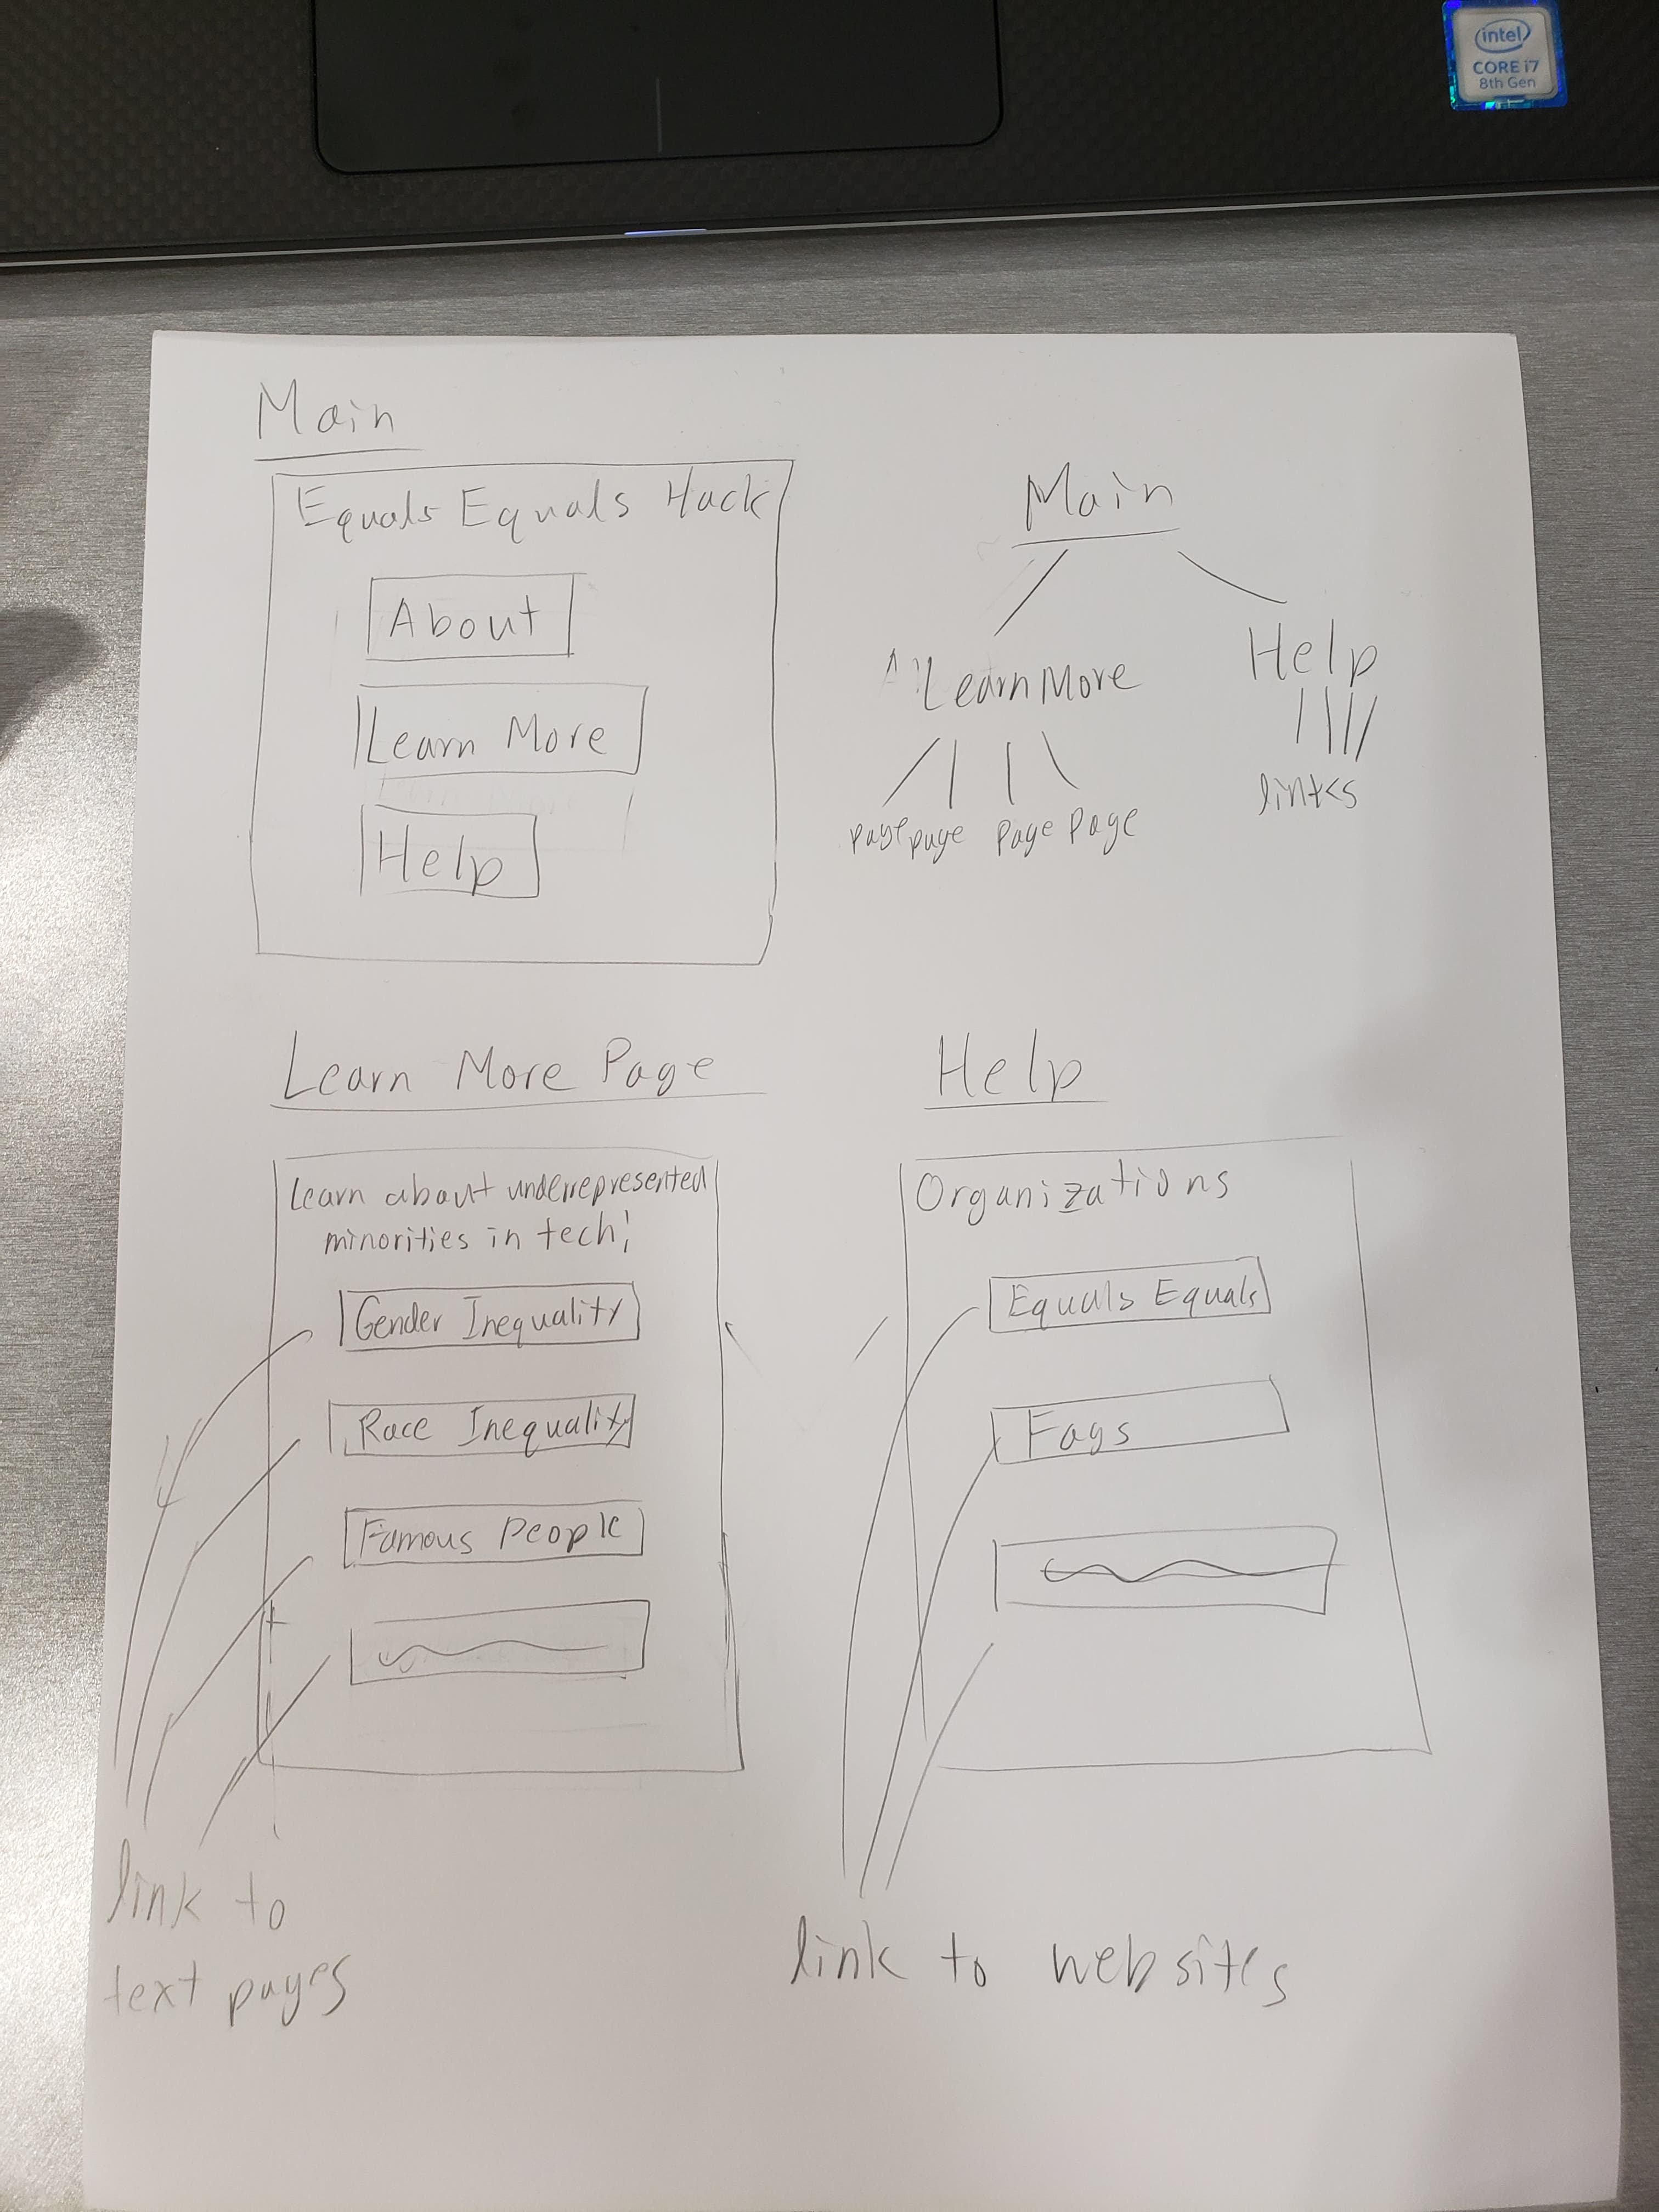 intel
CORE i7
8th Gen
Main
Equals Equals Hack
About
Learn More
Help
Main
Learn More
Help
page page page page
links
Learn More Page
Learn about underrepresented
minorities in tech!
Gender Inequality
Race Inequality
Famous People
link to
text pages
Help
Organizations
Equals Equals
link to websites